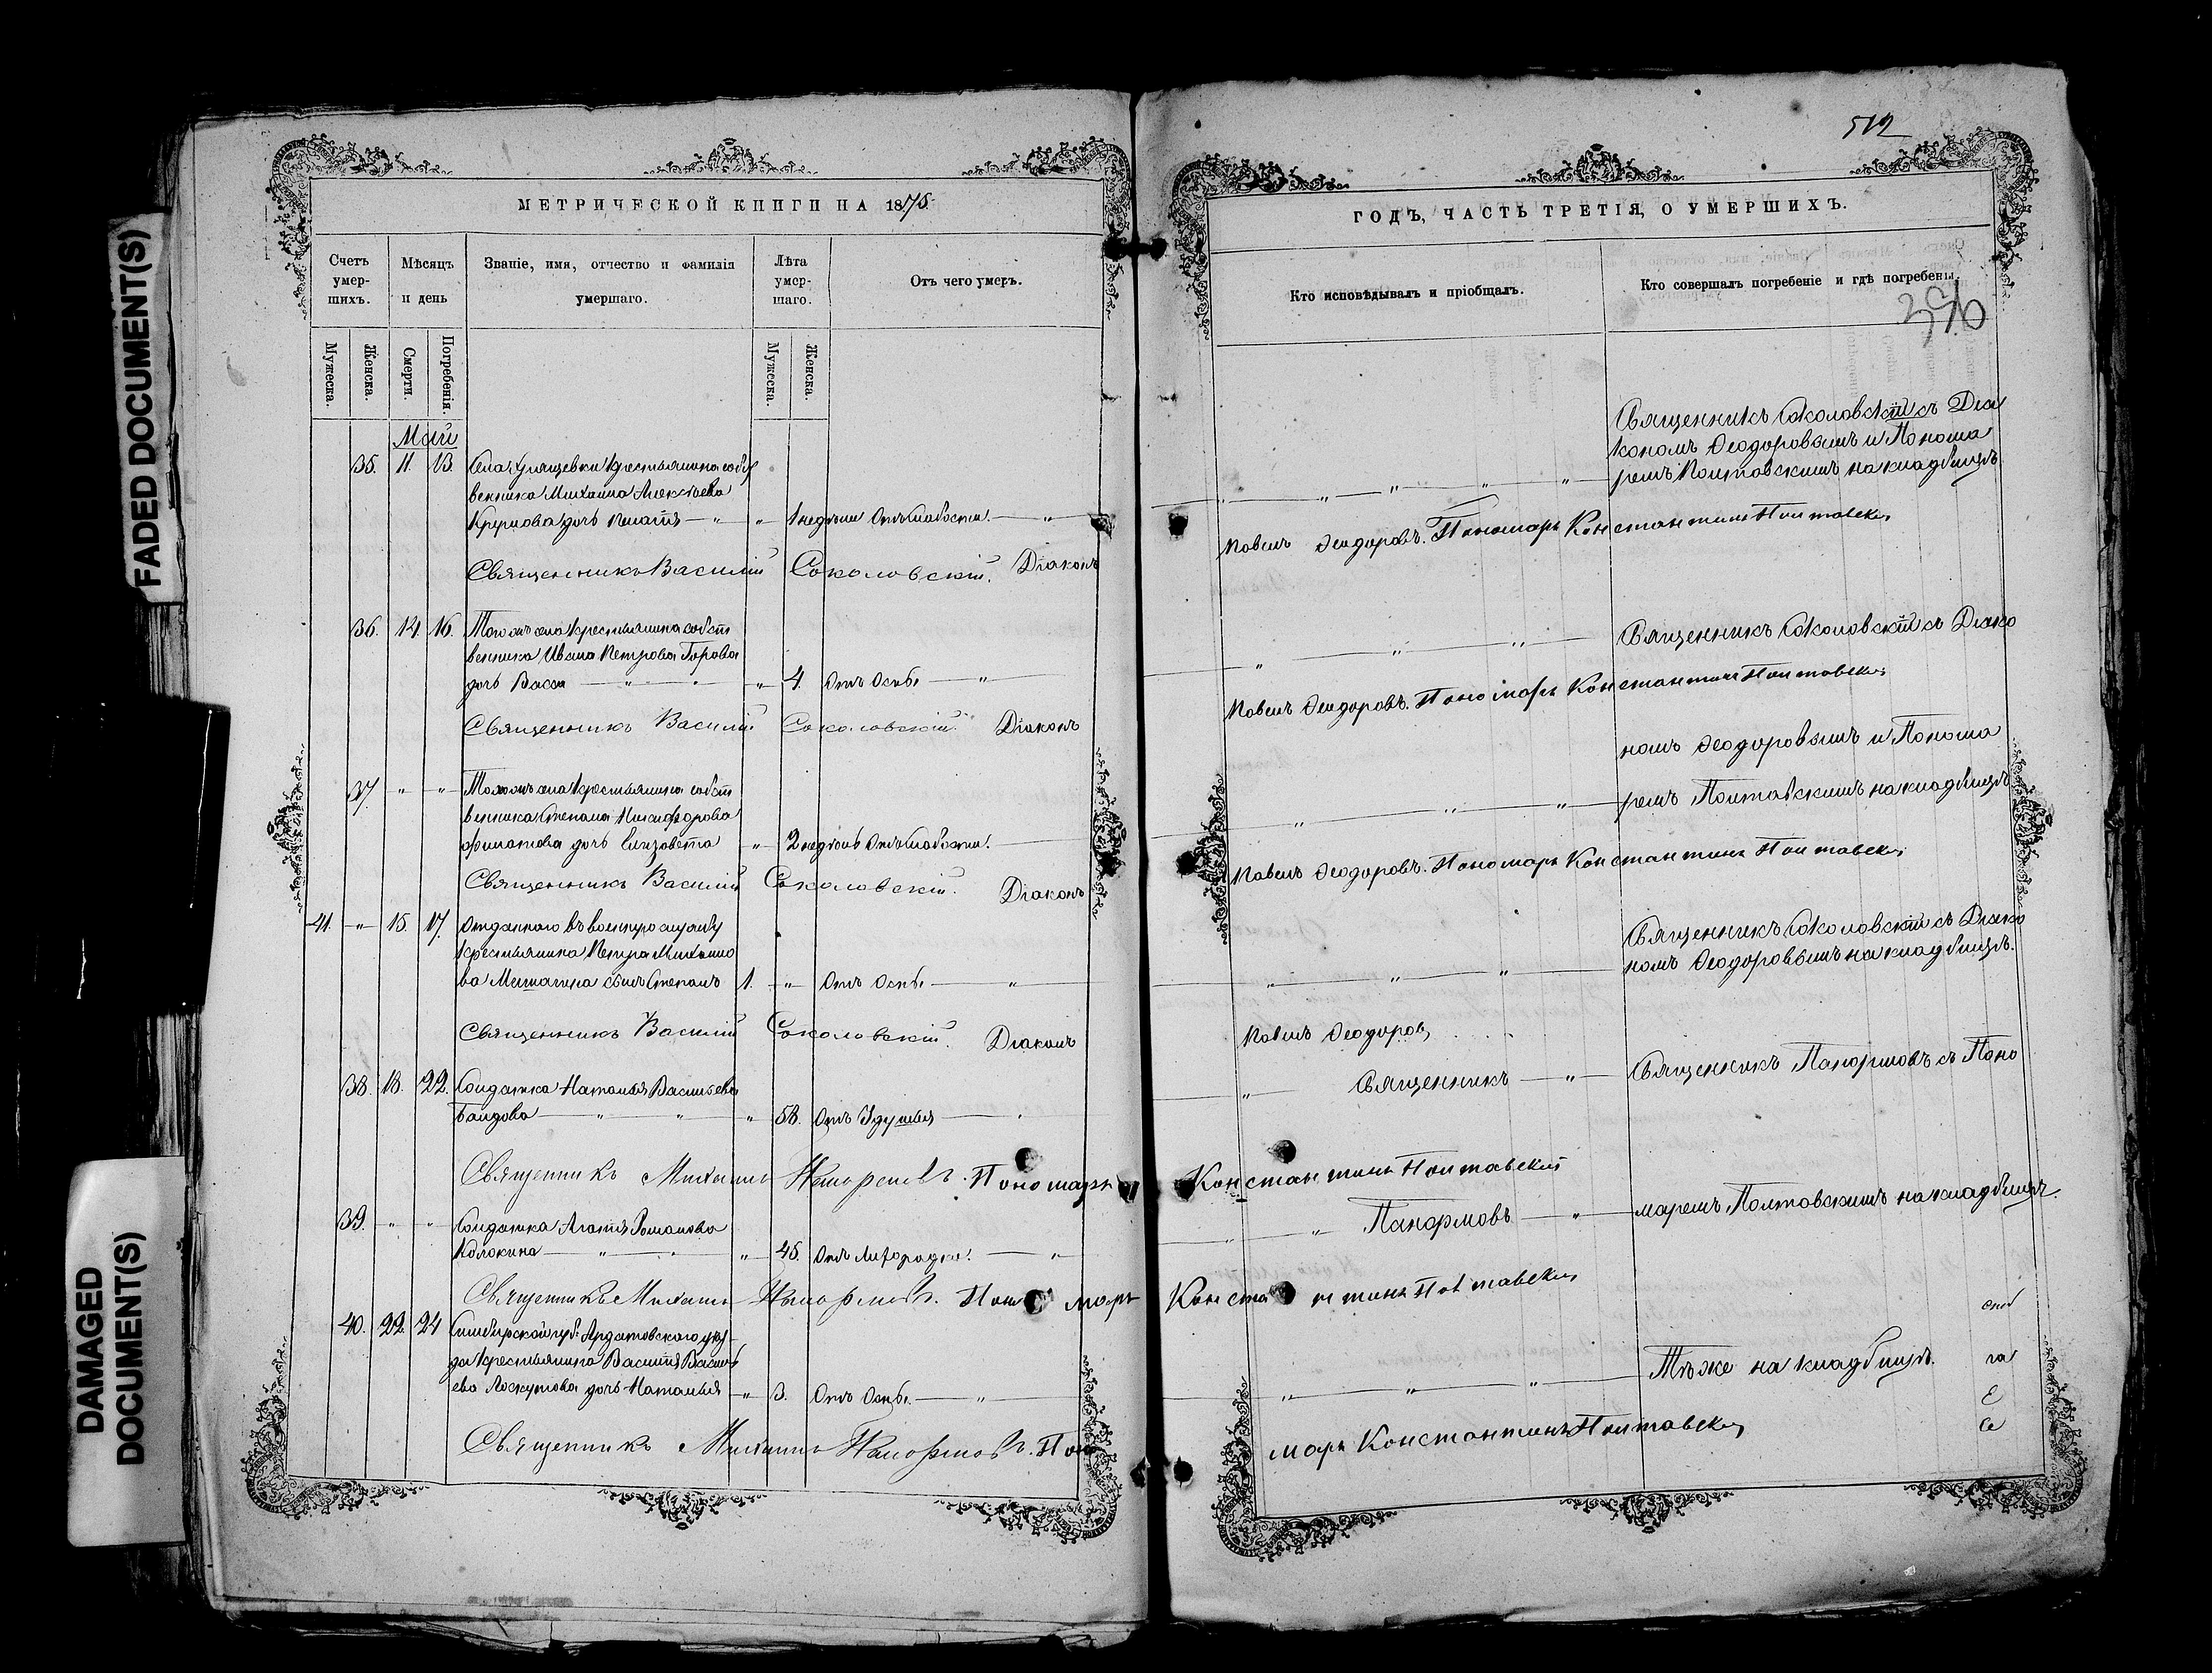 FADED DOCUMENT(S)
DAMAGED
DOCUMENT(S)
МЕТРИЧЕСКОЙ КНИГИ НА 1875
Счетъ
умер-
шихъ.
Мѣсяцъ
и день
Званіе, имя, отчество и фамилія
умершаго.
Лѣта
умер-
шаго.
Отъ чего умеръ.
Мужеска.
Женска.
Смерти.
Погребенія.
Мужеска.
Женска.
Май
35. 11. 13. Села крестьянина собст
венника Михаила Алексѣева
дочь — " — " 1 недѣли Отъ слабости. — "
Священникъ Василій Соколовскій. Діаконъ
36. 14. 16. Того жъ села крестьянина собст
венника Ивана Петрова
дочь Васса — " — " 4. Отъ Оспы — "
Священникъ Василій Соколовскій. Діаконъ
37. " " Того жъ села крестьянина собст
венника Степана Никифорова
Филатова дочь Елизавета — " 2 недѣль Отъ слабости.
Священникъ Василій Соколовскій. Діаконъ
41. " 15. 17. Отданного въ военную службу
крестьянина Петра Михайло
ва сынъ Степанъ 1. " Отъ Оспы — "
Священникъ Василій Соколовскій. Діаконъ
38. 18. 22. Солдатка Наталья Васильева
— " — " — " 58. Отъ Удушья — "
Священникъ Михаилъ Панормовъ. Пономарь
39. " " Солдатка Агафія Романова
— " — " — " 45. Отъ лихорадки. — "
Священникъ Михаилъ Панормовъ. Пономарь
40. 22. 24 Симбирской губ. Ардатовского уѣз
да крестьянина Василія Василь
ева Лоскутова дочь Наталья — " 3. Отъ Оспы — "
Священникъ Михаилъ Панормовъ. Поно
512
ГОДЪ, ЧАСТЬ ТРЕТІЯ, О УМЕРШИХЪ.
Кто исповѣдывалъ и пріобщалъ.
Кто совершалъ погребеніе и гдѣ погребены.
Священникъ Соколовскій съ Діа
кономъ Ѳеодоровымъ и Понома
ремъ Полтавскимъ на кладбищѣ.
Павелъ Ѳеодоровъ. Пономарь Константинъ Полтавскій
Священникъ Соколовскій съ Діако
Павелъ Ѳеодоровъ. Пономарь Константинъ Полтавскій
номъ Ѳеодоровымъ и Понома
ремъ Полтавскимъ на кладбищѣ
Павелъ Ѳеодоровъ. Пономарь Константинъ Полтавскій
Священникъ Соколовскій съ Діако
номъ Ѳеодоровымъ на кладбищѣ.
Павелъ Ѳеодоровъ
Священникъ — " — Священникъ Панормовъ съ Поно
Константинъ Полтавскій
Панормовъ — " — маремъ Полтавскимъ на кладбищѣ.
Константинъ Полтавскій
Тѣ же на кладбищѣ.
марь Константинъ Полтавскій